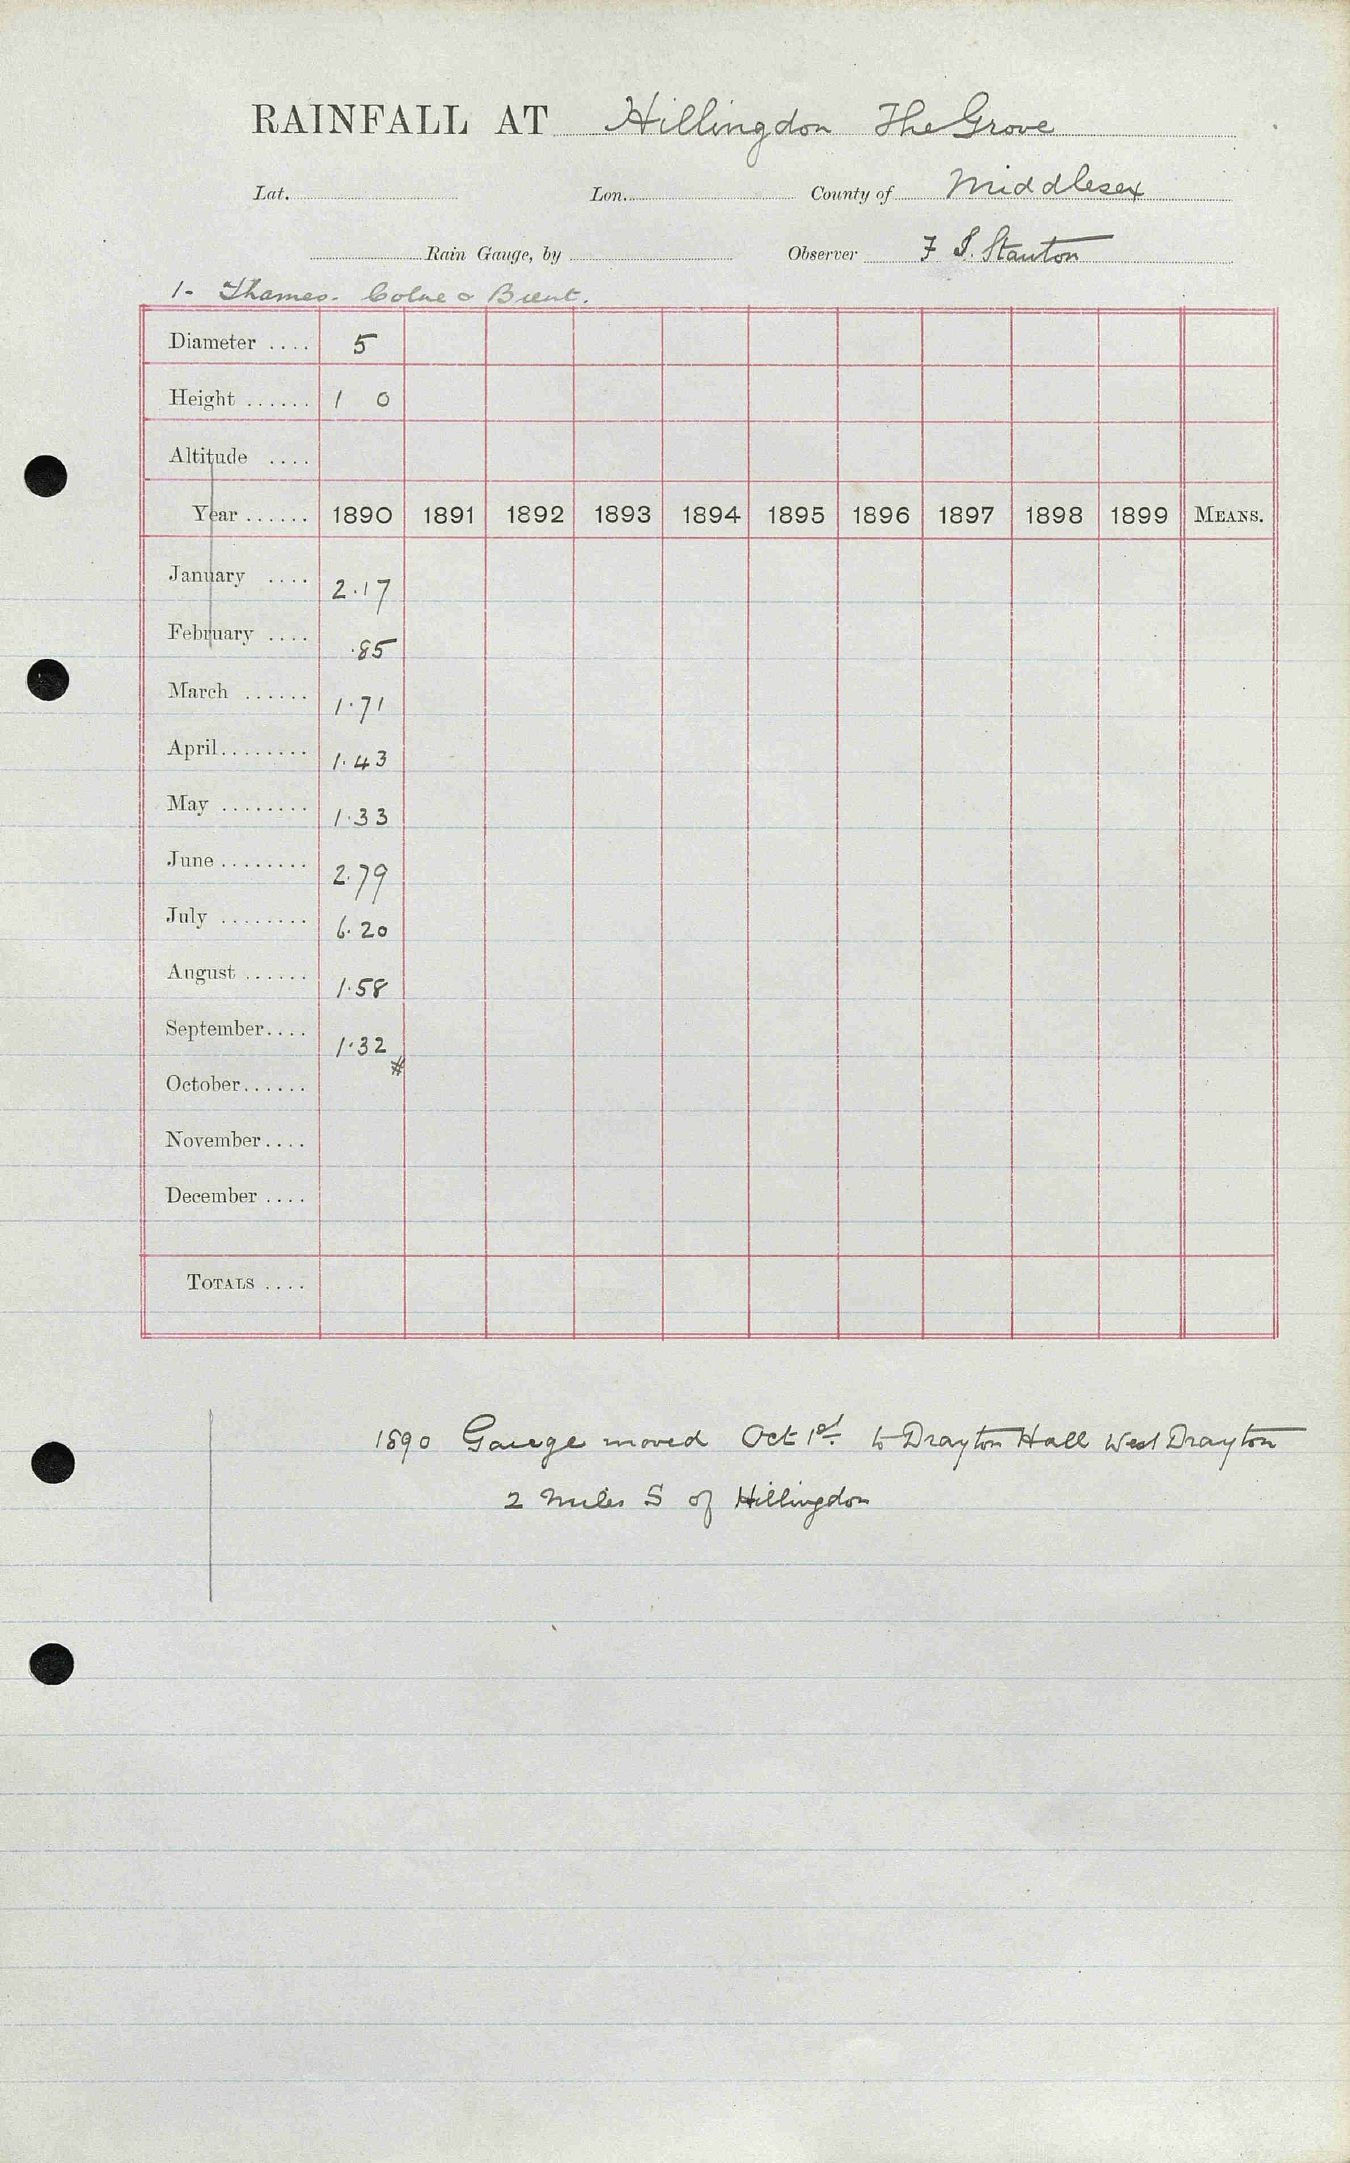 RAINFALL AT Hillingdon The Grove
Lat. Lon. County of Middlesex
Rain Gauge, by Observer F J. Stanton
1- Thames. Colne & Brent.
Diameter .... 5
Height ...... 1 0
Altitude ....
Year ...... 1890 1891 1892 1893 1894 1895 1896 1897 1898 1899 MEANS.
January .... 2.17
February .... .85
March ...... 1.71
April........ 1.43
May ........ 1.33
June ........ 2.79
July ........ 6.20
August ...... 1.58
September.... 1.32
#
October......
November....
December ....
TOTALS ....
1890 Gauge moved Oct 1st. to Drayton Hall West Drayton
2 miles S of Hillingdon